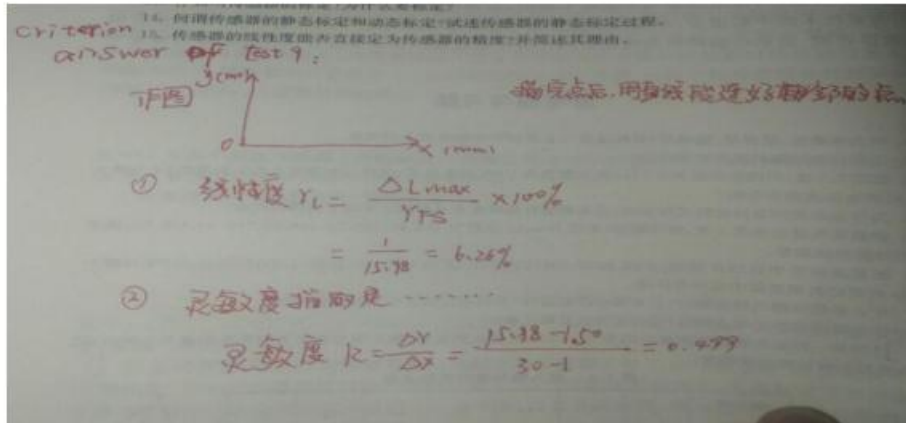 14. 何谓传感器的静态标定和动态标定?试述传感器的静态标定过程。
Criterion 15. 传感器的线性度能否直接定为传感器的精度?并简述其理由。
answer of test 9:
y(mv)
作图
描完点后,用直线
0 x (mm)
① 线性度 γL = ΔLmax / YFS ×100%
= 1 / 15.98 = 6.26%
② 灵敏度指的是 ·······
灵敏度 k = ΔY / ΔX = 15.98-1.50 / 30-1 = 0.499